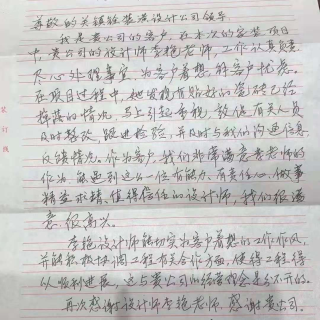 尊敬的关镇铨装潢设计公司领导
我是贵公司的客户,在本次的家装项目
中,贵公司的设计师李艳老师,工作认真负责
尽心处理事宜,为客户着想,解客户忧虑。
在项目过程中,她发现有贴好的瓷砖已经
掉落的情况,马上引起重视,敦促有关人员
及时整改,跟进检验,并及时与我们沟通信息
反馈情况。作为客户,我们非常满意李老师的
作法,能遇到这么一位有能力、有责任心、做事
精益求精、值得信任的设计师,我们很满
意,很高兴。
李艳设计师能切实为客户着想的工作作风,
并能积极协调工程有关合作方面,使得工程得
以顺利进展,这与贵公司的经营理念是分不开的。
再次感谢设计师李艳老师 感谢贵公司。
装订线